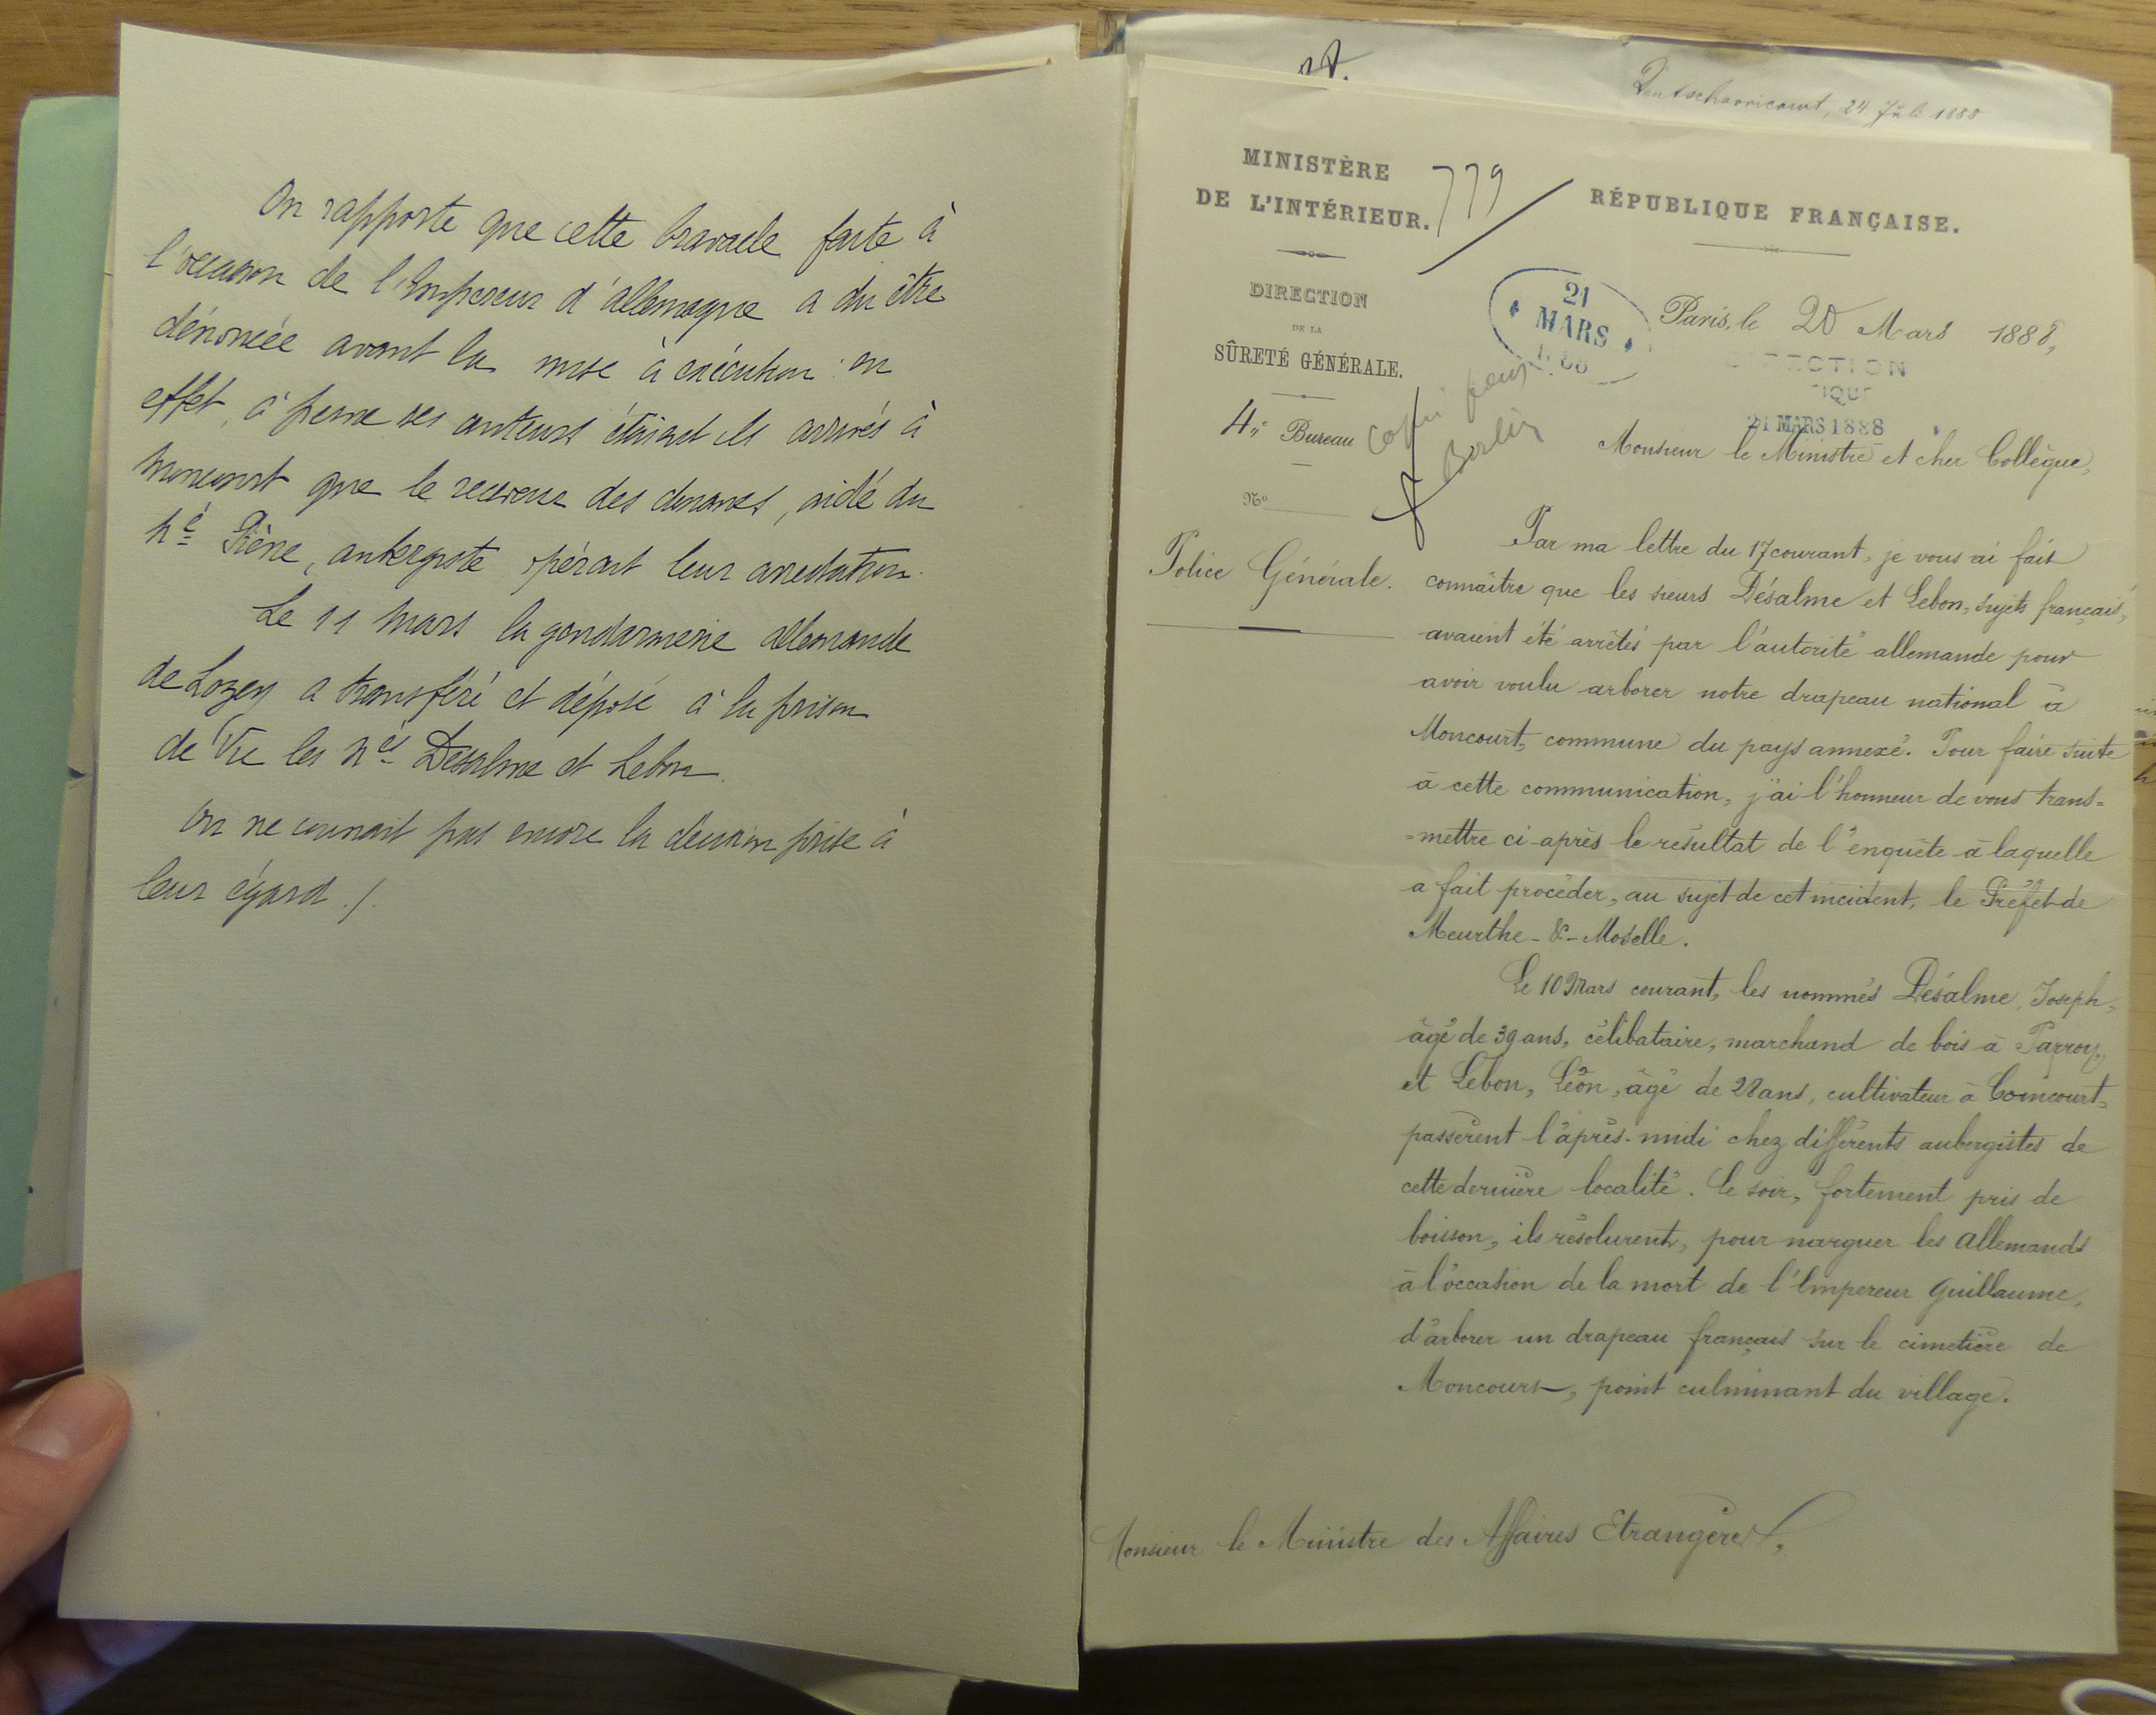 On rapporte que cette bravade faite à
l'occasion de l'Empereur d'allemagne a du être
dénoncée avant la mise à exécution : en
effet, à peine ses auteurs étaient ils arrivés à
Moncourt que le receveur des douanes, aidé du
né Piène, aubergiste opérait leur arrestation.
Le 11 Mars la gendarmerie allemande
de Lezey a transféré et déposé à la prison
de Vic les nés Désalme et Lebon.
On ne connait pas encore la décision prise à
leur égard ./.
24 Juli 1888
MINISTÈRE
DE L'INTÉRIEUR.
779
RÉPUBLIQUE FRANÇAISE.
DIRECTION
DE LA
SÛRETÉ GÉNÉRALE.
21
MARS
Paris, le 20 Mars 1888,
21 MARS 1888
4e Bureau
Copie pour
Berlin
No
Police Générale.
Monsieur le Ministre et cher Collègue,
Par ma lettre du 17 courant, je vous ai fait
connaître que les sieurs Désalme et Lebon, sujets français,
avaient été arrêtés par l'autorité allemande pour
avoir voulu arborer notre drapeau national à
Moncourt, commune du pays annexé. Pour faire suite
à cette communication, j'ai l'honneur de vous trans=
=mettre ci-après le résultat de l'enquête à laquelle
a fait procéder, au sujet de cet incident, le Préfet de
Meurthe-&-Moselle.
Le 10 Mars courant, les nommés Désalme, Joseph,
âgé de 39 ans, célibataire, marchand de bois à Parroy,
et Lebon, Léon, âgé de 28 ans, cultivateur à Coincourt,
passèrent l'après-midi chez différents aubergistes de
cette dernière localité. Le soir, fortement pris de
boisson, ils résolurent, pour narguer les Allemands
à l'occasion de la mort de l'Empereur Guillaume,
d'arborer un drapeau français sur le cimetière de
Moncourt, point culminant du village.
Monsieur le Ministre des Affaires Etrangères,